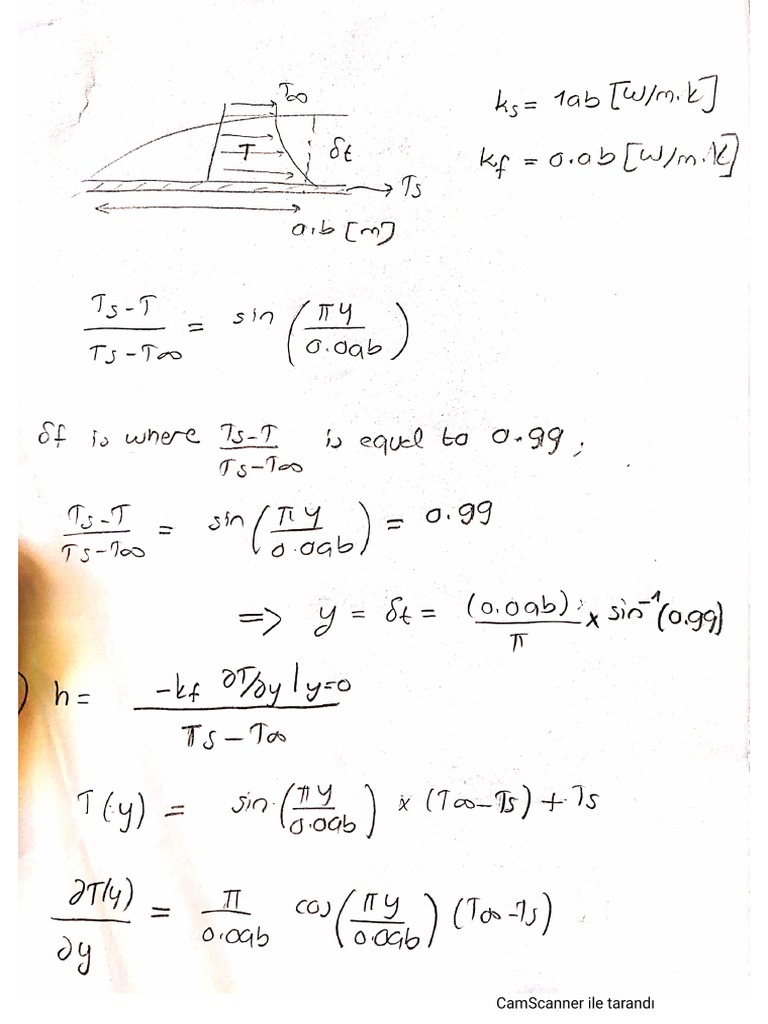 T∞
ks = 1ab [W/m.K]
T
δt
kf = 0.ab [W/m.K]
Ts
a.b [m]
Ts-T / Ts-T∞ = sin (πy / 0.0ab)
δt is where Ts-T / Ts-T∞ is equal to 0.99;
Ts-T / Ts-T∞ = sin (πy / 0.0ab) = 0.99
=> y = δt = (0.0ab) / π x sin⁻¹(0.99)
) h = -kf ∂T/∂y |y=0 / Ts-T∞
T(y) = sin (πy / 0.0ab) x (T∞-Ts) + Ts
∂T(y) / ∂y = π / 0.0ab cos (πy / 0.0ab) (T∞-Ts)
CamScanner ile tarandı